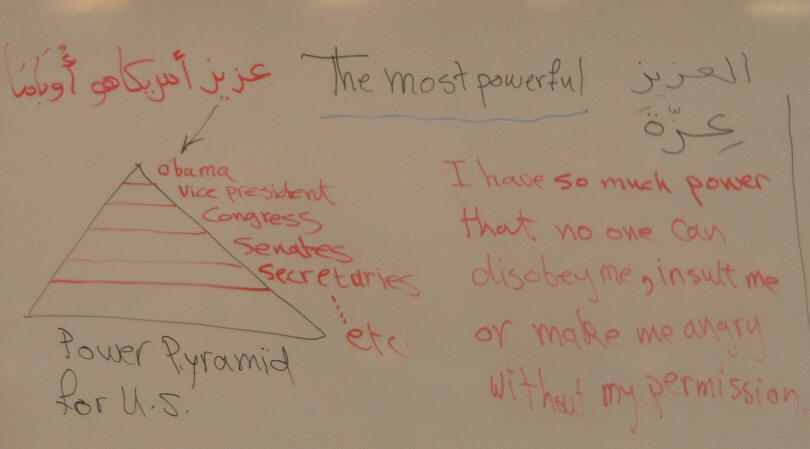 عزيز أمريكا هو أُوبَامَا
The most powerful
العزيز
عِزَّة
obama
Vice president
Congress
Senates
Secretaries
etc.
Power Pyramid
for U.S.
I have so much power
that no one can
disobey me, insult me
or make me angry
without my permission.